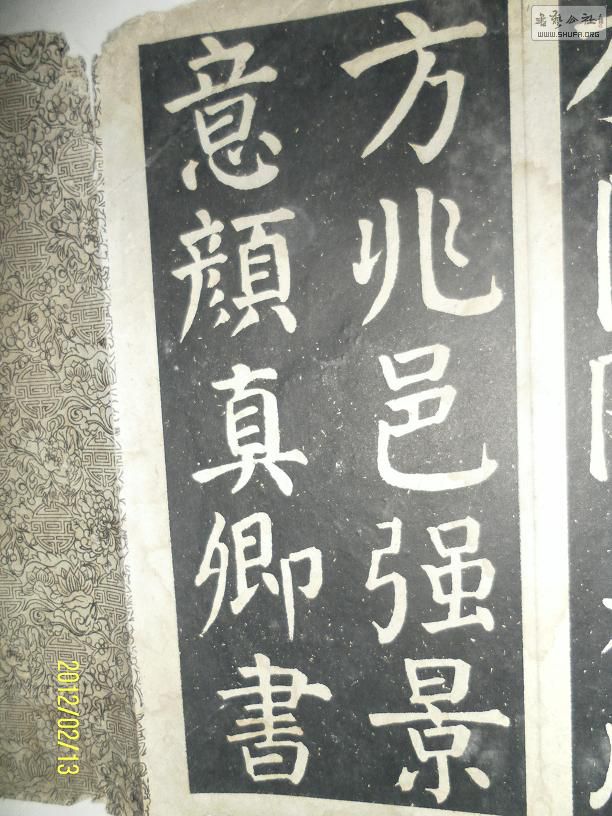 方兆邑强景
意顔真卿書
2012/02/13
书艺公社
WWW.SHUFA.ORG